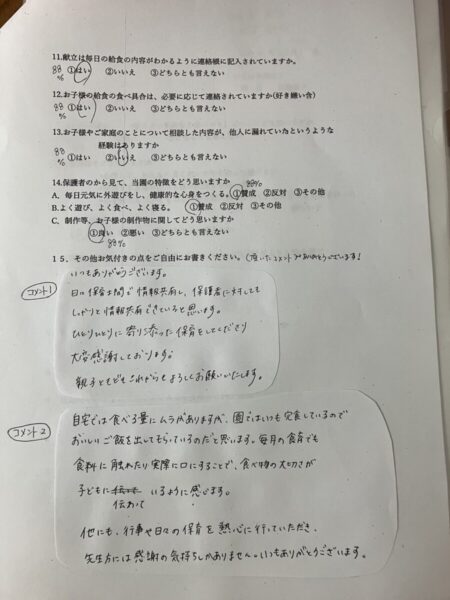 11.献立は毎日の給食の内容がわかるように連絡帳に記入されていますか。
88% ①はい ②いいえ ③どちらとも言えない
12.お子様の給食の食べ具合は、必要に応じて連絡されていますか(好き嫌い含)
88% ①はい ②いいえ ③どちらとも言えない
13.お子様やご家庭のことについて相談した内容が、他人に漏れていたというような
経験はありますか
88% ①はい ②いいえ ③どちらとも言えない
14.保護者のから見て、当園の特徴をどう思いますか
A. 毎日元気に外遊びをし、健康的な心身をつくる。 ①賛成 ②反対 ③その他 88%
B.よく遊び、よく食べ、よく寝る。 ①賛成 ②反対 ③その他
C. 制作等、お子様の制作物に関してどう思いますか
①良い ②悪い ③どちらとも言えない
88%
15．その他お気付きの点をご自由にお書きください。(頂いたコメントありがとうございます!
コメント1
いつもありがとうございます。
日々保育士間で情報共有し、保護者に対しても
しっかりと情報共有できていると思います。
ひとりひとりに寄り添った保育をしてくださり
大変感謝しております。
親子ともどもこれからもよろしくお願いいたします。
コメント2
自宅では食べる量にムラがありますが、園ではいつも完食しているので
おいしいご飯を出してもらっているのだと思います。毎月の食育でも
食料に触れたり実際に口にすることで、食べ物の大切さが
子どもに伝わっているように感じます。
他にも、行事や日々の保育を熱心に行っていただき、
先生方には感謝の気持ちしかありません。いつもありがとうございます。